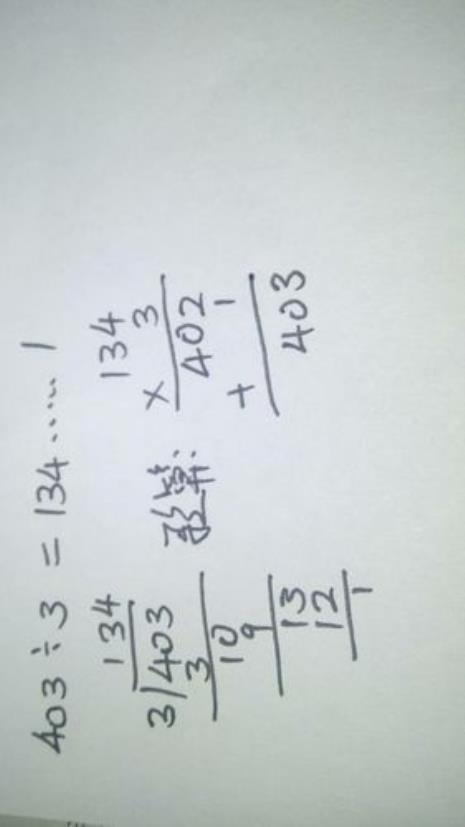 403÷3=134……1
134
3)403
3
10
9
13
12
1
验算:
134
×3
402
+1
403